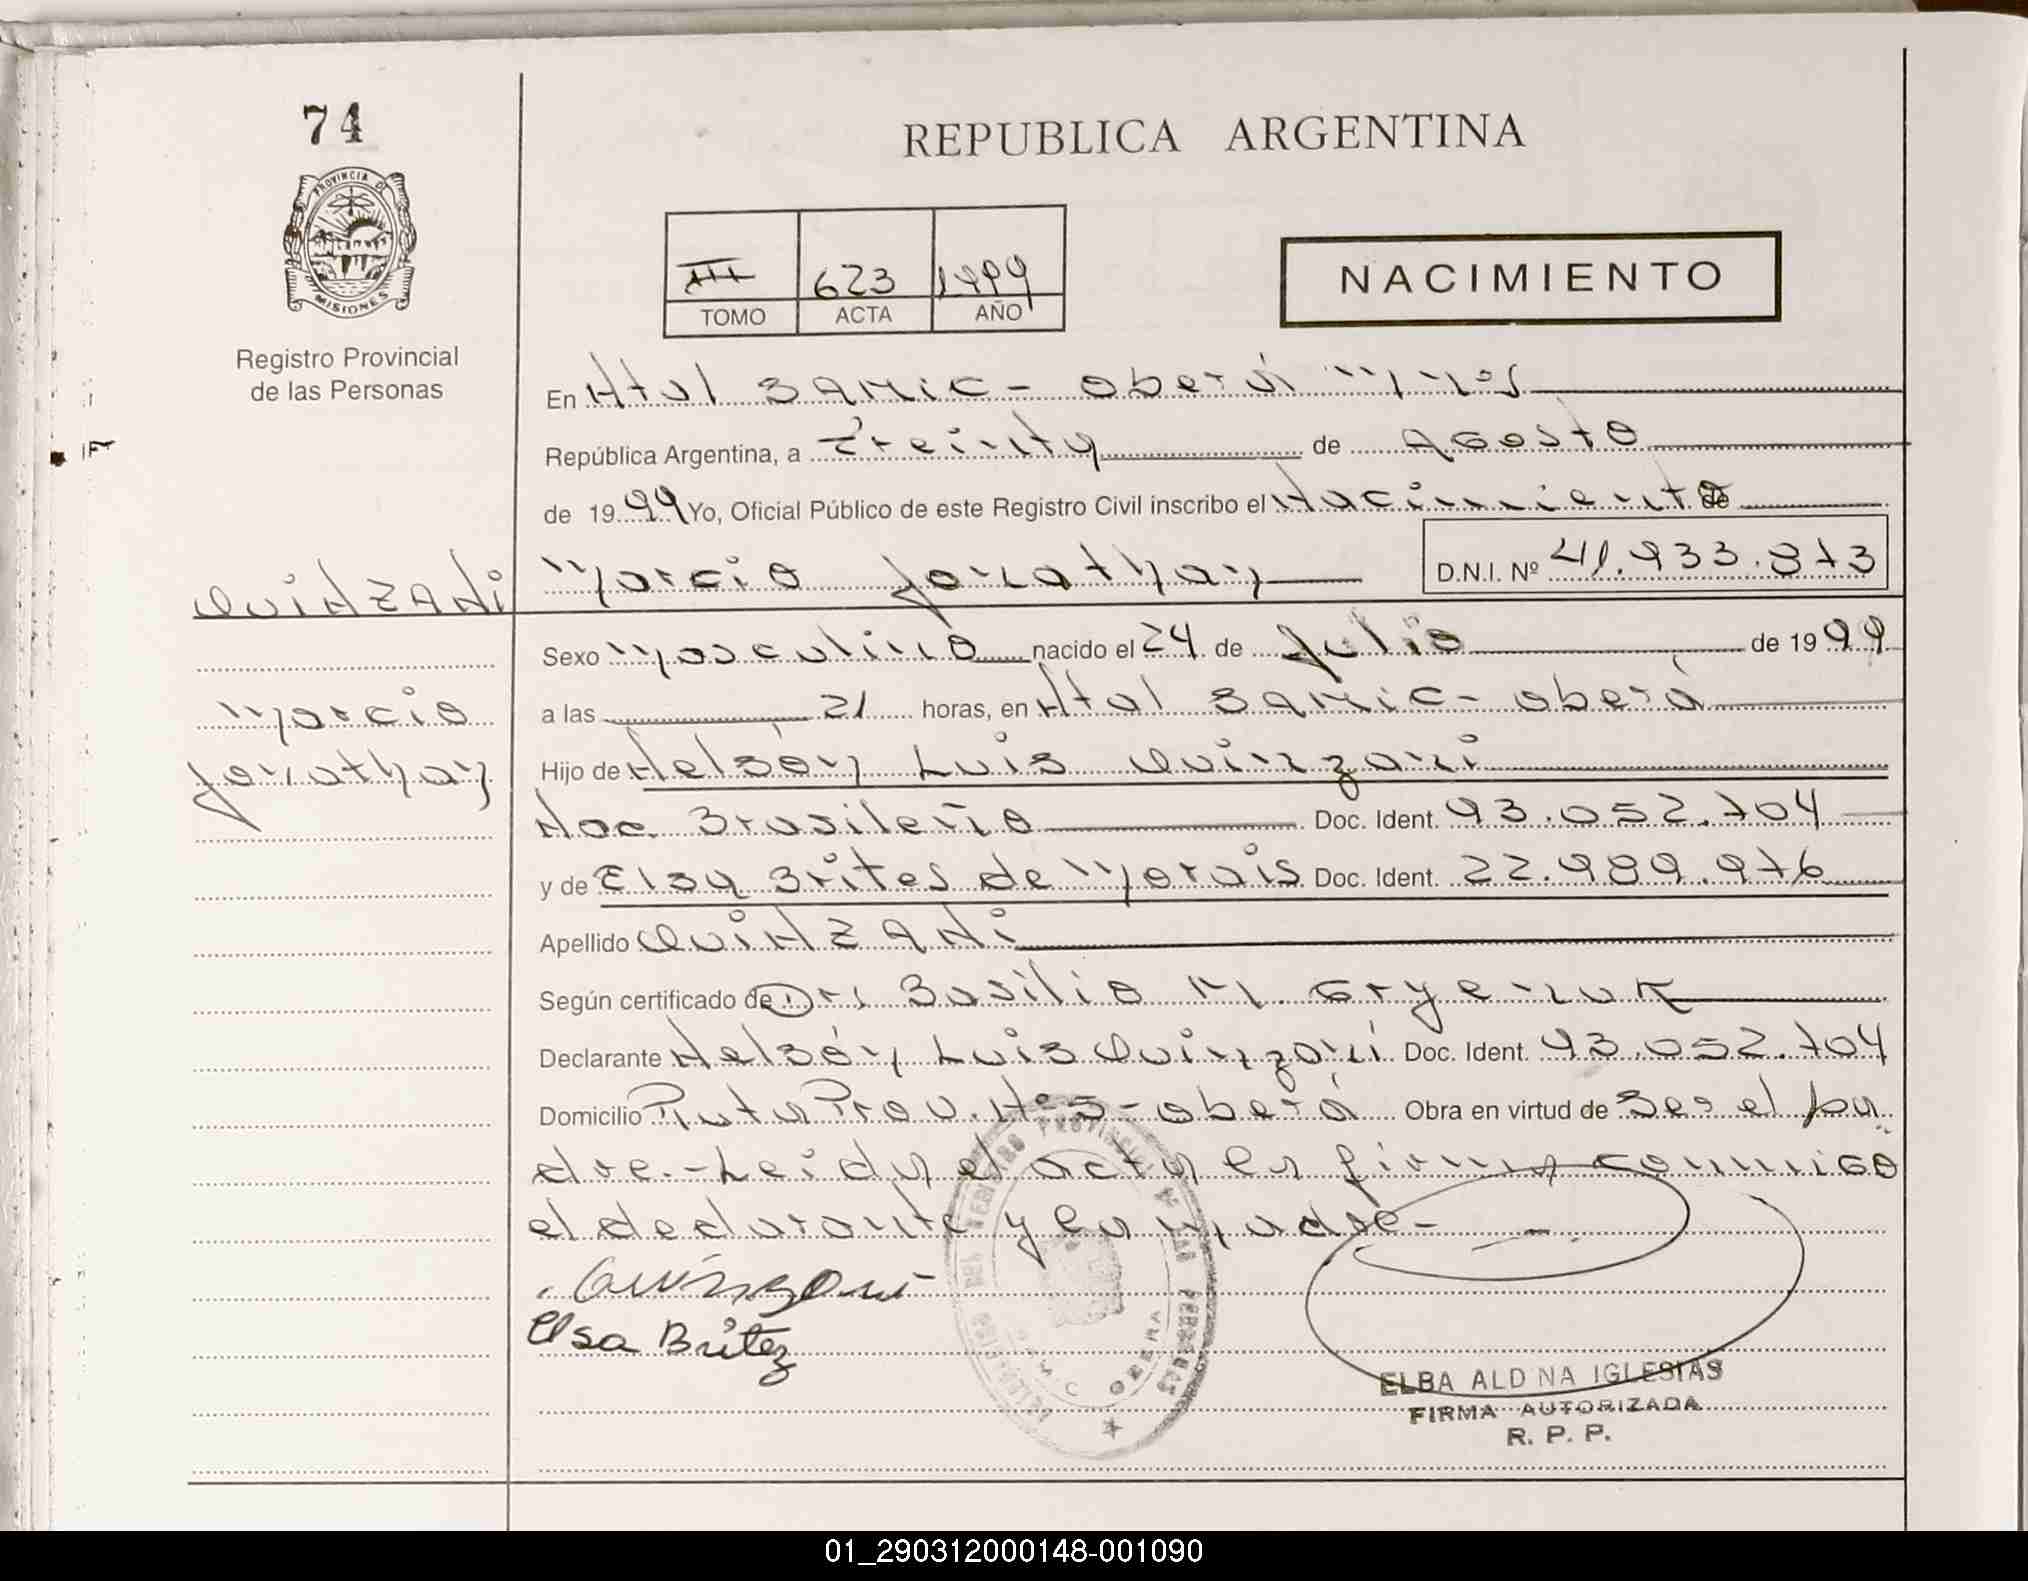 74
REPUBLICA ARGENTINA
PROVINCIA DE
MISIONES
Registro Provincial
de las Personas
III 623 1999
TOMO ACTA AÑO
NACIMIENTO
En Htal SAMIC - Oberá Mnes
República Argentina, a Treinta de Agosto
de 1999 Yo, Oficial Público de este Registro Civil inscribo el Nacimiento de
QUINZANI Marcio Jonathan D.N.I. Nº 41.933.873
Sexo Masculino nacido el 24 de Julio de 1999
Marcio a las 21 horas, en Htal SAMIC - Oberá
Jonathan Hijo de Nelsón Luis Quinzani
Nac. Brasileño Doc. Ident. 93.052.704
y de Elsa Brites de Morais Doc. Ident. 22.989.976
Apellido QUINZANI
Según certificado de Dr. Basilio M.
Declarante Nelsón Luis Quinzani Doc. Ident. 93.052.704
Domicilio Ruta Prov. Nº 5 - Oberá Obra en virtud de Ser el pa
dre.- Leida el acta la firma conmigo
el declarante y la madre-
Quinzani
Elsa Britez
OBERA
ELBA ALDINA IGLESIAS
FIRMA AUTORIZADA
R. P. P.
01_290312000148-001090